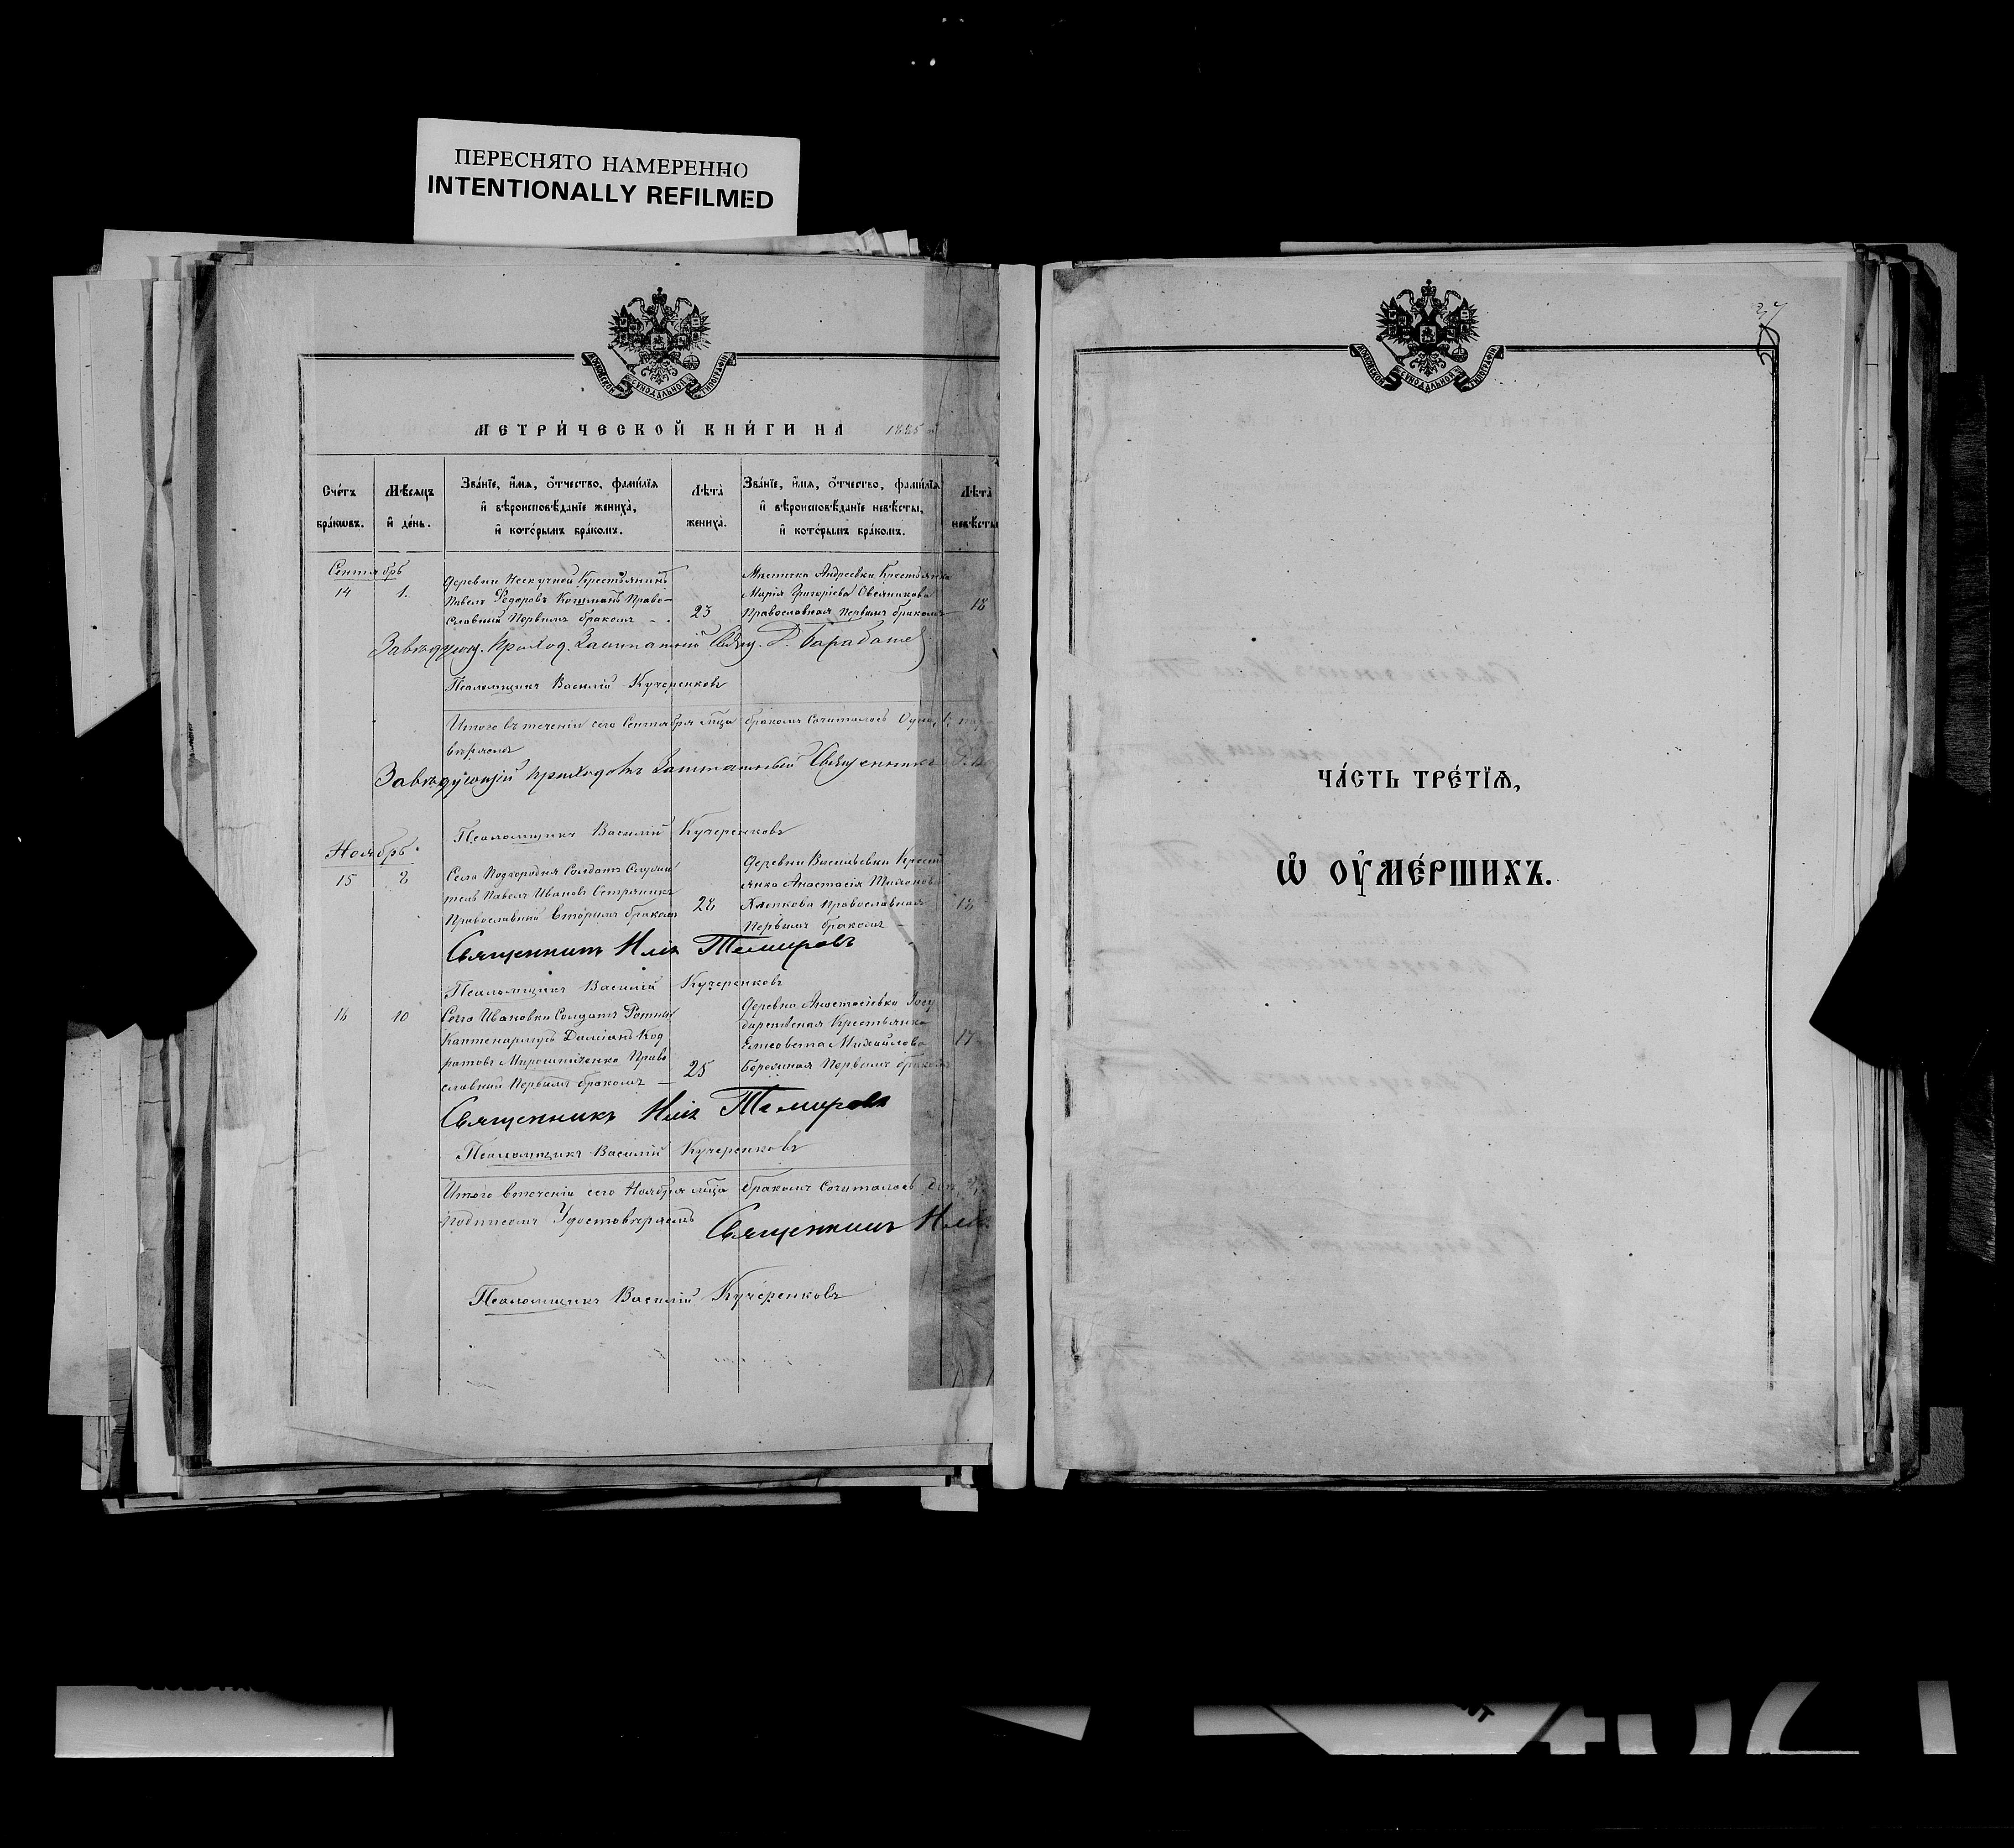 ПЕРЕСНЯТО НАМЕРЕННО
INTENTIONALLY REFILMED
МОСКОВСКОЙ СѴНОДАЛЬНОЙ ТИПОГРАФІИ
МЕТРИ́ЧЕСКОЙ КНИ́ГИ НА 1885
Сче́тъ бра́кωвъ.
Мѣ́сяцъ и҆ де́нь.
Зва́нїе, и҆́мя, ѻ҆́тчество, фами́лїя
и҆ вѣроисповѣ́данїе жениха̀,
и҆ кото́рымъ бра́комъ.
Лѣта̀ жениха̀.
Зва́нїе, и҆́мя, ѻ҆́тчество, фами́лїя
и҆ вѣроисповѣ́данїе невѣ́сты,
и҆ кото́рымъ бра́комъ.
Лѣта̀ невѣ́сты
Сентябрь
14 1.
Деревни Нескучной Крестьянинъ
Павелъ Федоровъ Кошманъ Право-
славный Первымъ бракомъ
23
Мѣстечка Андреевки Крестьянка
Марія Григорьева Овсяникова
Православная Первымъ бракомъ
18
Завѣдующ. Приход. Заштатный Свящ. Д. Барабашев
Псаломщикъ Василій Кучеренковъ
Итого въ теченіи сего Сентября мѣца бракомъ Сочиталось Одна, 1,
Завѣдующій приходомъ Заштатный Священникъ
Псаломщикъ Василій Кучеренковъ
Ноябрь
15 8
Села Подгородня Солдатъ Служи
тель Павелъ Ивановъ
Православный Вторымъ бракомъ
28
Деревни Васильевки Крест
янка Анастасія Тихонова
Православная
Первымъ бракомъ
18
Священникъ Илія Темировъ
Псаломщикъ Василій Кучеренковъ
16 10
Села Ивановки Солдатъ Ротный
Каптенармусъ Даміанъ Код
ратовъ Мирошниченко Право
славный Первымъ бракомъ
25
Деревни Анастасіевки Госу
дарственая Крестьянка
Елисовета Михайлова
Первымъ бракомъ
17
Священникъ Илія Темировъ
Псаломщикъ Василій Кучеренковъ
Итого втеченіи сего Ноября мѣца бракомъ Сочиталось
подписомъ Удостовѣряемъ
Священникъ Илія
Псаломщикъ Василій Кучеренковъ
МОСКОВСКОЙ СѴНОДАЛЬНОЙ ТИПОГРАФІИ
37
ЧА́СТЬ ТРЕ́ТЇѦ,
Ѡ҆ ОУ҆МЕ́РШИХЪ.